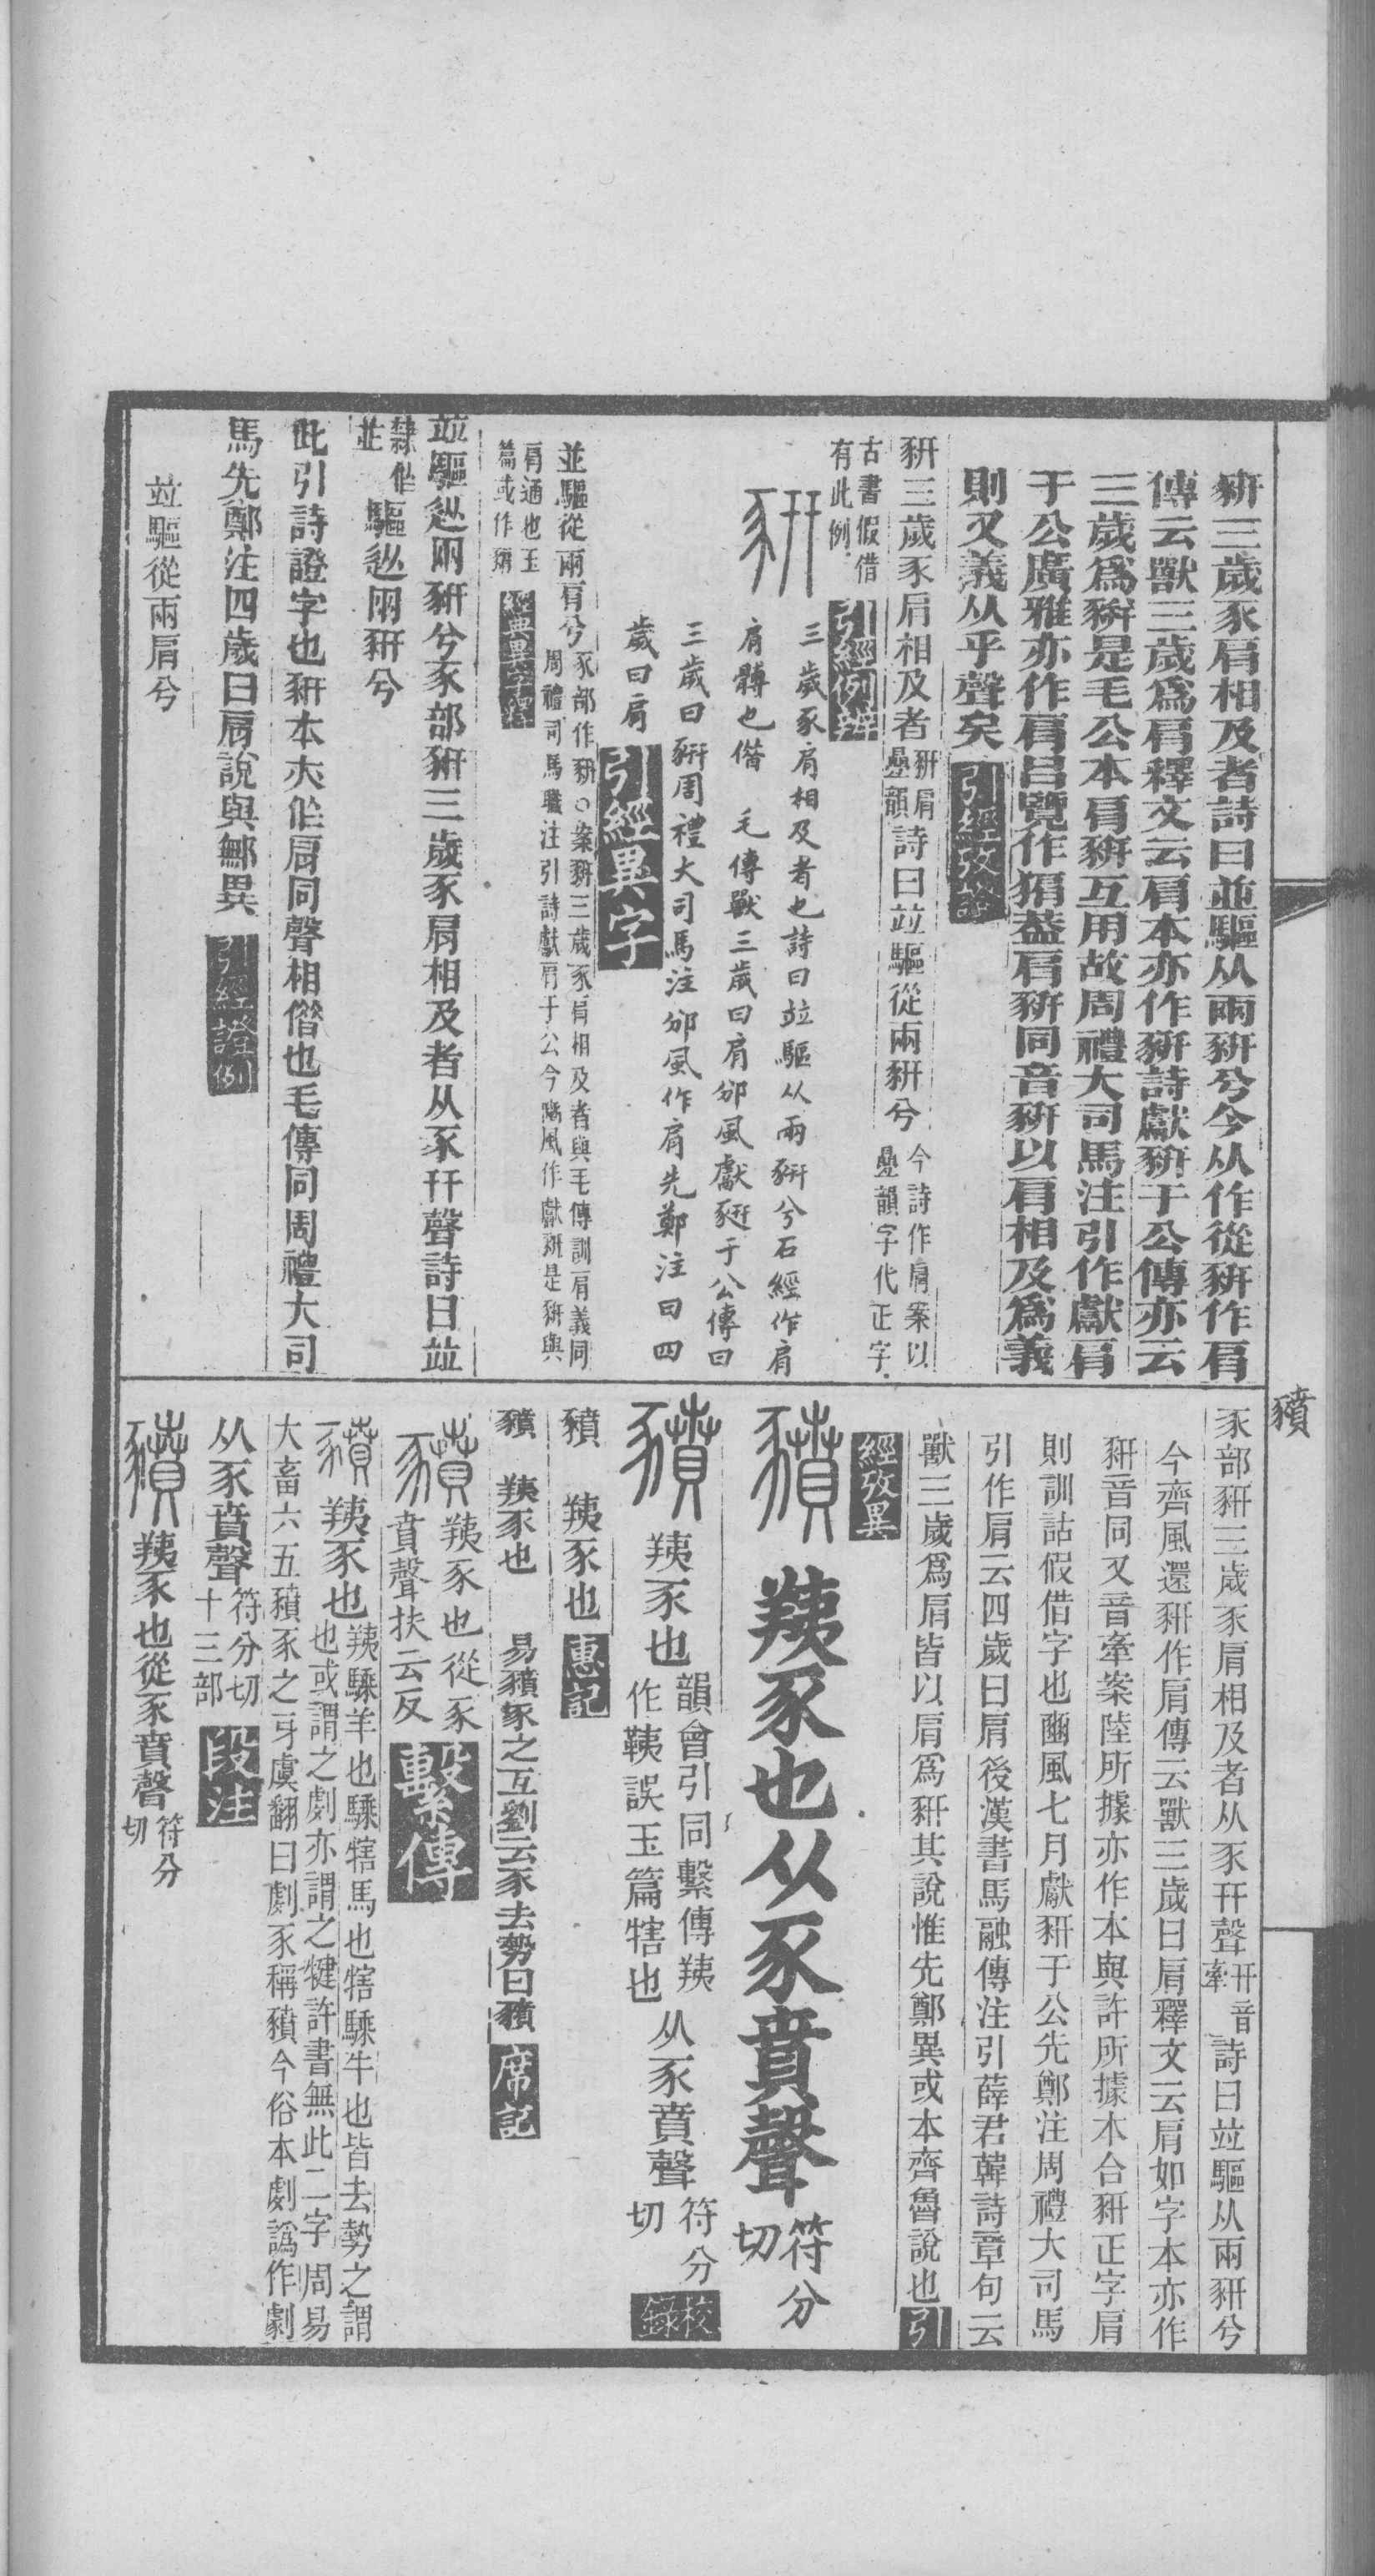 豣三歲豕肩相及者詩曰並驅从兩豣兮今从作從豣作肩
傳云獸三歲爲肩釋文云肩本亦作豣詩獻豣于公傳亦云
三歲爲豣是毛公本肩豣互用故周禮大司馬注引作獻肩
于公廣雅亦作肩呂覽作猏蓋肩豣同音豣以肩相及爲義
則又義从乎聲矣 引經攷證
豣三歲豕肩相及者豣肩疊韻詩曰竝驅從兩豣兮今詩作肩案以疊韻字代正字
古書假借有此例 引經例辨
豣
三歲豕肩相及者也詩曰竝驅从兩豣兮石經作肩
肩髆也偕 毛傳獸三歲曰肩邠風獻豜于公傳曰
三歲曰豣周禮大司馬注邠風作肩先鄭注曰四
歲曰肩 引經異字
並驅從兩肩兮豕部作豣○案豣三歲豕肩相及者與毛傳訓肩義同
周禮司馬職注引詩獻肩于公今豳風作獻豣是豣與
肩通也玉篇或作猏
竝驅從兩豣兮豕部豣三歲豕肩相及者从豕幵聲詩曰竝
隸作並驅從兩豣兮
此引詩證字也豣本大作肩同聲相偕也毛傳同周禮大司
馬先鄭注四歲曰肩說與鄦異 引經證例
竝驅從兩肩兮
豶
豕部豣三歲豕肩相及者从豕幵聲幵音牽詩曰竝驅从兩豣兮
今齊風還豣作肩傳云獸三歲曰肩釋文云肩如字本亦作
豣音同又音牽案陸所據亦作本與許所據木合豣正字肩
則訓詁假借字也豳風七月獻豣于公先鄭注周禮大司馬
引作肩云四歲曰肩後漢書馬融傳注引薛君韓詩章句云
獸三歲爲肩皆以肩爲豣其說惟先鄭異或本齊魯說也 引
經攷異
豶 羠豕也从豕賁聲符分切
豶 羠豕也韻會引同繫傳羠作䩟誤玉篇犗也从豕賁聲符分切 校錄
豶 羠豕也 惠記
豶 羠豕也 易豶豕之互劉云豕去勢曰豶 席記
豶 羠豕也從豕賁聲扶云反 繫傳
豶 羠豕也羠騬羊也騬犗馬也犗騬牛也皆去勢之謂
也或謂之劇亦謂之犍許書無此二字周易
大畜六五豶豕之牙虞翻曰劇豕稱豶今俗本劇譌作劇
从豕賁聲符分切十三部 段注
豶 羠豕也從豕賁聲符分切